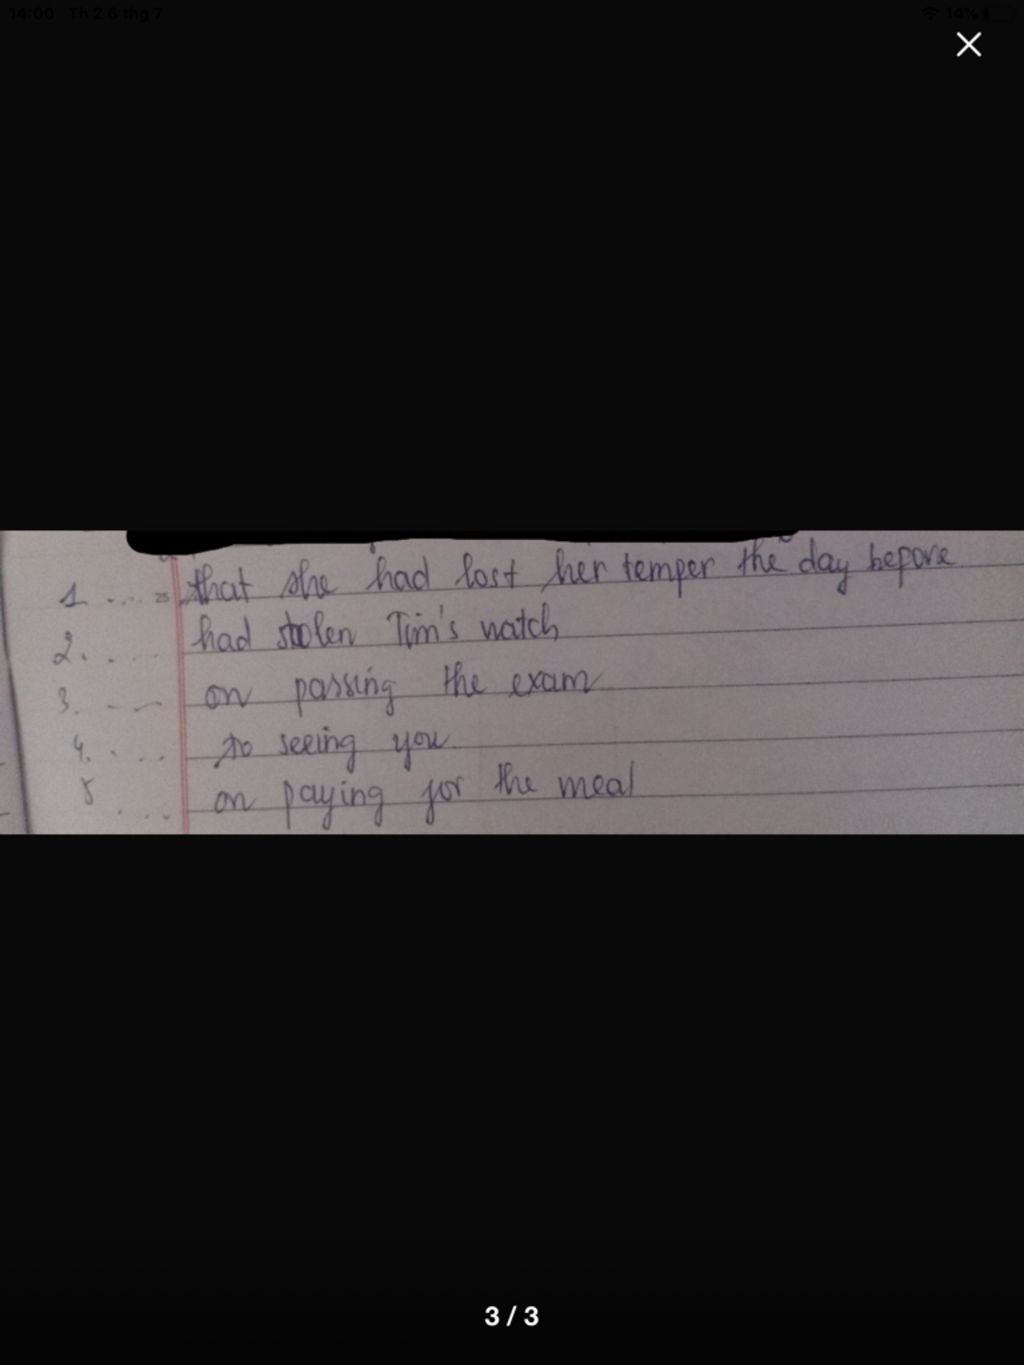 14:00 Th 2 6 thg 7 14%
1 .... 25 that she had lost her temper the day before
2. ... had stolen Tim's watch
3. ... on passing the exam
4. ... to seeing you
5 ... on paying for the meal
3 / 3